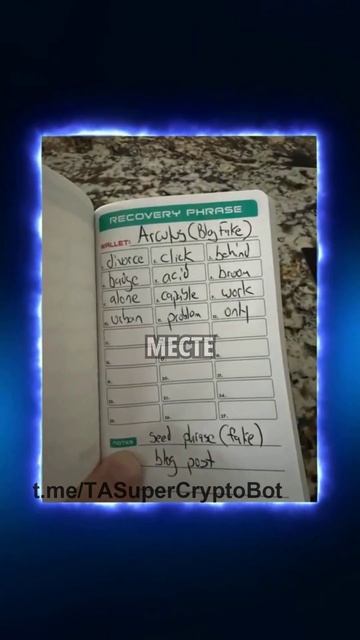 RECOVERY PHRASE
WALLET: Arculus (Blog Fake)
divorce click behind
badge acid broom
alone capable work
urban problem only
МЕСТЕ
NOTES seed phrase (fake)
blog post
t.me/TASuperCryptoBot